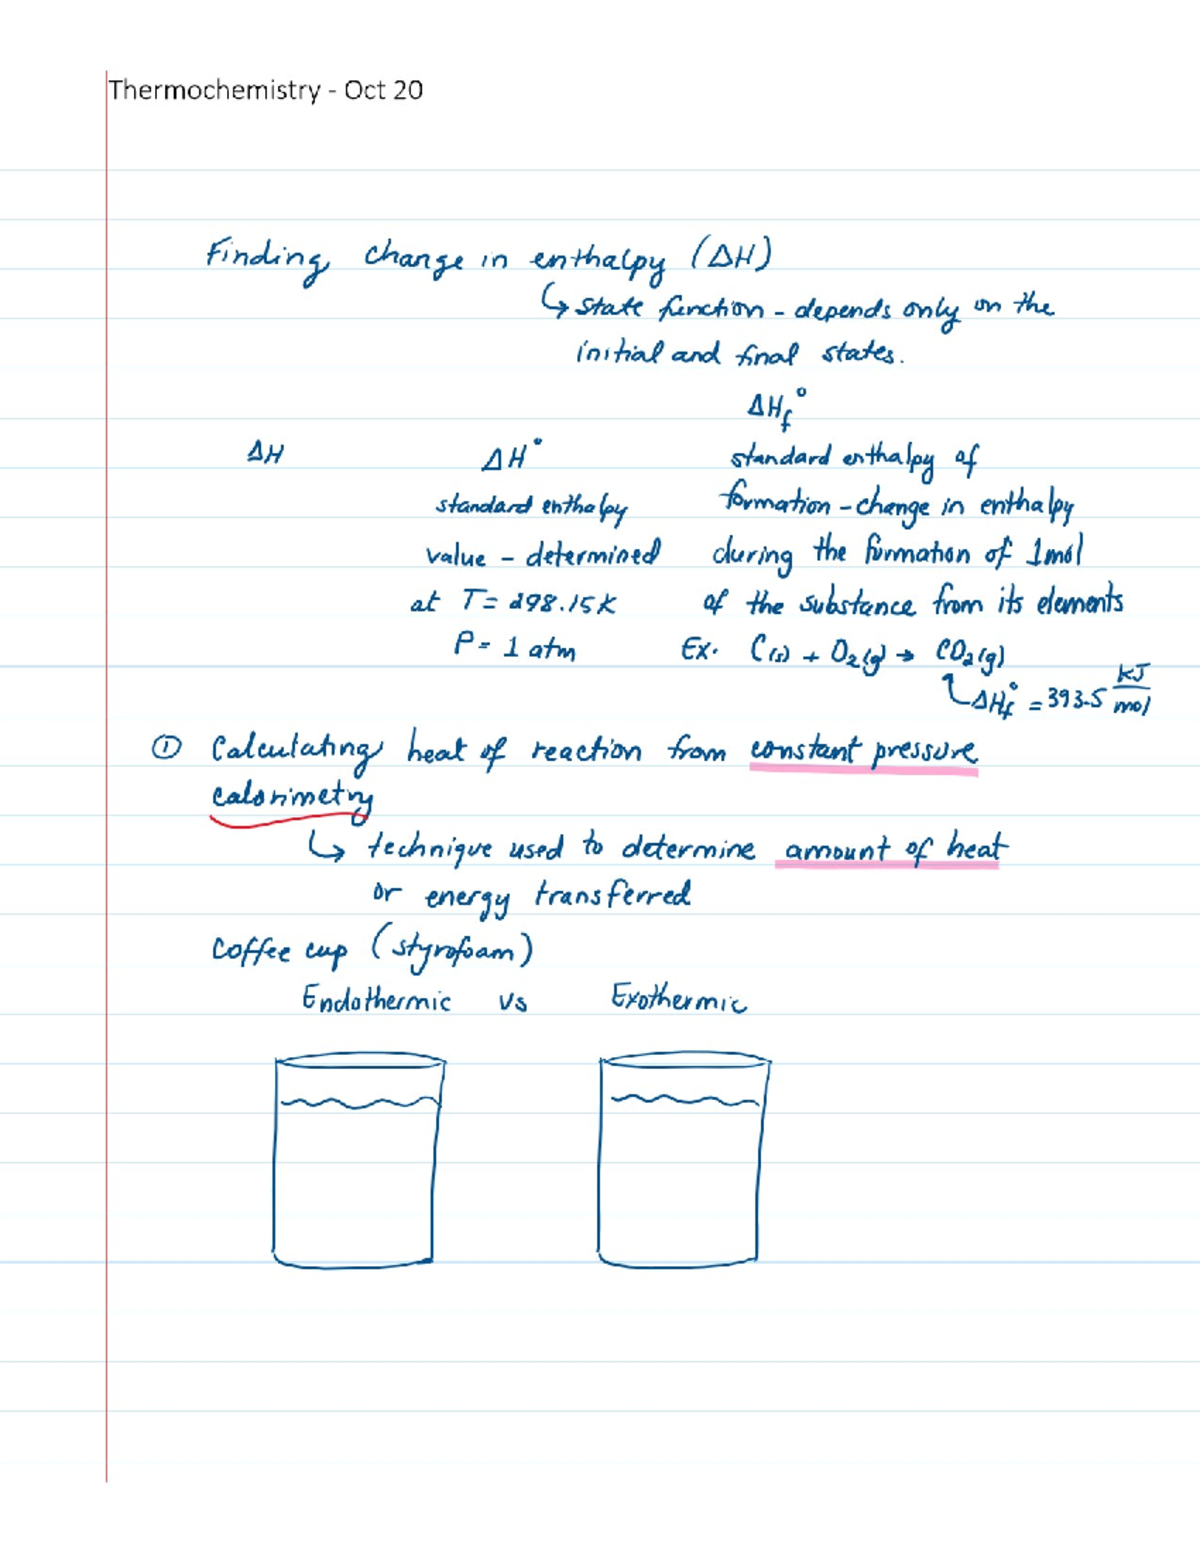 Thermochemistry - Oct 20
Finding change in enthalpy (ΔH)
↳ state function - depends only on the
initial and final states.
ΔHf°
ΔH ΔH° standard enthalpy of
standard enthalpy formation - change in enthalpy
value - determined during the formation of 1mol
at T= 298.15K of the substance from its elements
P= 1 atm Ex. C(s) + O2(g) → CO2(g)
ΔHf° = 393.5 kJ/mol
① Calculating heat of reaction from constant pressure
calorimetry
↳ technique used to determine amount of heat
or energy transferred
coffee cup (styrofoam)
Endothermic vs Exothermic